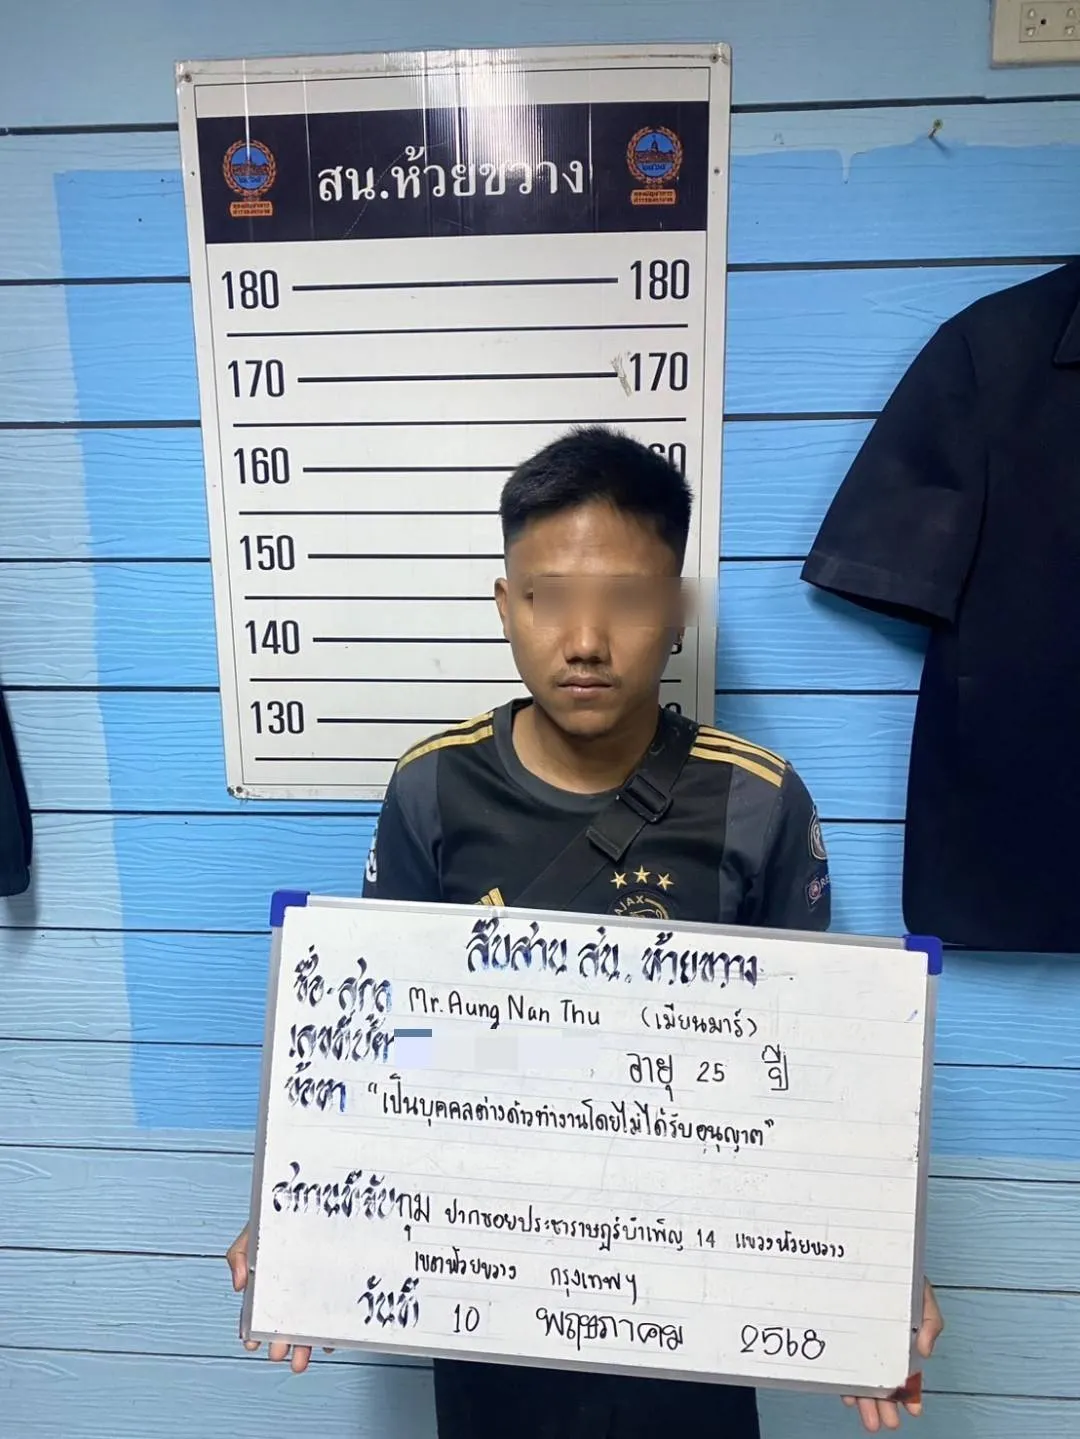 สน.ห้วยขวาง
180 180
170 170
160
150
140
130
AJAX
สืบสวน สน. ห้วยขวาง
ชื่อ-สกุล Mr. Aung Nan Thu (เมียนมาร์)
เลขที่บัตร อายุ 25 ปี
ข้อหา "เป็นบุคคลต่างด้าวทำงานโดยไม่ได้รับอนุญาต"
สถานที่จับกุม ปากซอยประชาราษฎร์บำเพ็ญ 14 แขวงห้วยขวาง
เขตห้วยขวาง กรุงเทพฯ
วันที่ 10 พฤษภาคม 2568